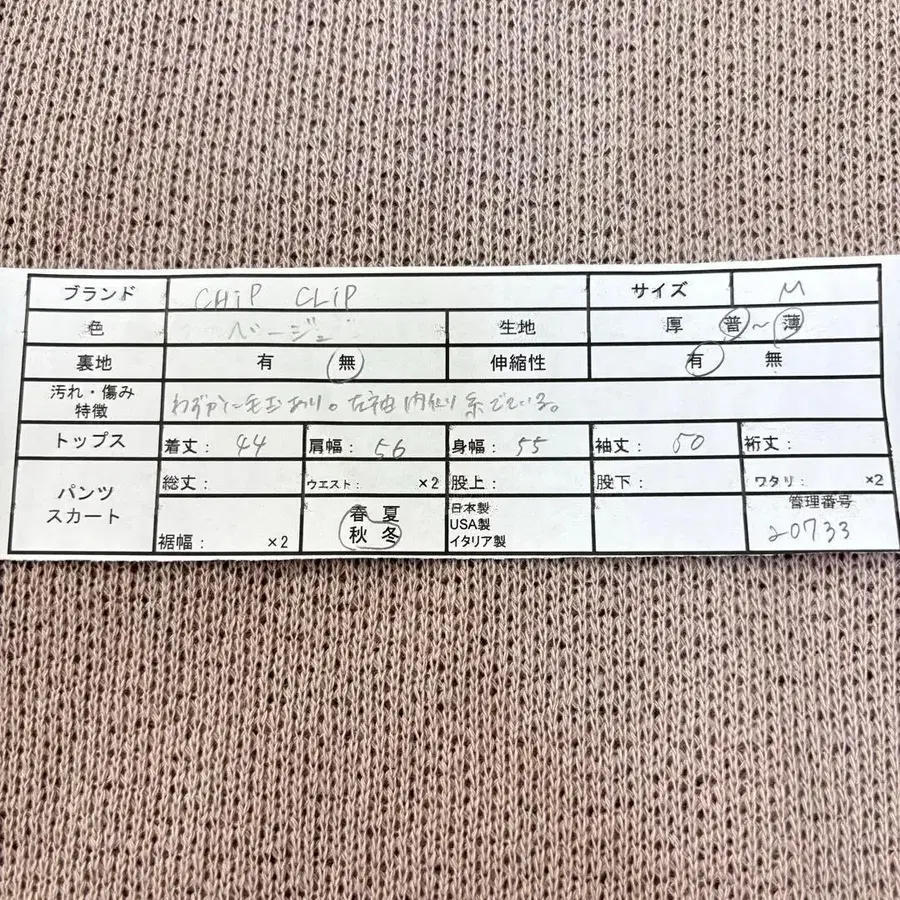 ブランド CHiP CLiP サイズ M
色 ベージュ 生地 厚 普～薄
裏地 有 無 伸縮性 有 無
汚れ・傷み
特徴 わずかに毛玉あり。左袖内側り糸でている。
トップス 着丈: 44 肩幅: 56 身幅: 55 袖丈: 50 裄丈:
パンツ
スカート
総丈: ウエスト: ×2 股上: 股下: ワタリ: ×2
裾幅: ×2
春 夏
秋 冬
日本製
USA製
イタリア製
管理番号
20733